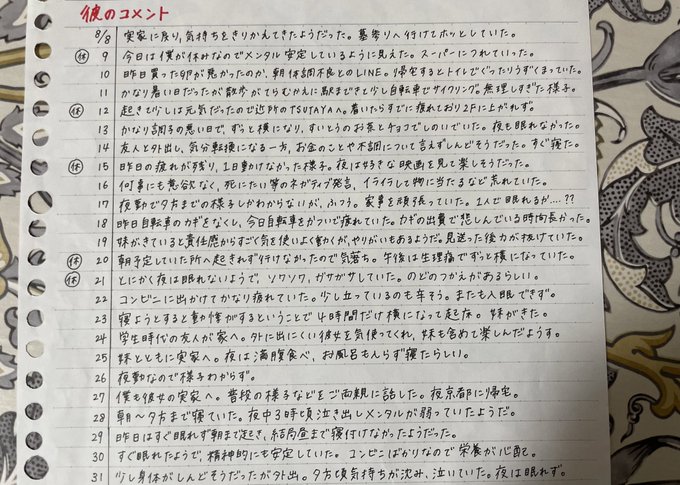 彼のコメント
8/8 実家に戻り、気持ちをきりかえてきたようだった。墓参りへ行けてホッとしていた。
休 9 今日は僕が休みなのでメンタル安定しているように見えた。スーパーにつれていった。
10 昨日買った卵が悪かったのか、朝体調不良とのLINE。帰宅するとトイレでぐったりうずくまっていた。
11 かなり暑い日だったが散歩がてらむかえに駅まできと少し自転車でサイクリング。無理しすぎた様子。
休 12 起きて少しは元気だったので近所のTSUTAYAへ。着いたらすでに疲れており2Fに上がれず。
13 かなり調子の悪い日で、ずっと横になり、すいとうのお茶とチョコでしのいでいた。夜も眠れなかった。
14 友人と外出し、気分転換になる一方、お金のことや不調について言えずしんどそうだった。すぐ寝た。
休 15 昨日の疲れが残り、1日動けなかった様子。夜は好きな映画を見て楽しそうだった。
16 何事にも意欲なく、死にたい等のネガティブ発言、イライラして物に当たるなど荒れていた。
17 夜勤で夕方までの様子しかわからないが、ふつう。家事を頑張っていた。1人で眠れるか…??
18 昨日自転車のカギをなくし、今日自転車をかついで疲れていた。カギの出費で悲しんでいる時間長かった。
19 妹がきていると責任感からすごく気を使いよく動くが、やりがいもあるようだ。見送った後力が抜けていた。
休 20 朝予定していた所へ起きれず行けなかったので気落ち。午後は生理痛でずっと横になっていた。
休 21 とにかく夜は眠れないようで、ソワソワ、ガサガサしていた。のどのつかえがあるらしい。
22 コンビニに出かけてかなり疲れていた。少し立っているのも辛そう。またも入眠できず。
23 寝ようとすると動悸がするということで4時間だけ横になって起床。妹がきた。
24 学生時代の友人が家へ。外に出にくい彼女を気使ってくれ、妹も含めて楽しんだようす。
25 妹とともに実家へ。夜は満腹食べ、お風呂も入らず寝たらしい。
26 夜勤なので様子わからず。
27 僕も彼女の実家へ。普段の様子などをご両親に話した。夜京都に帰宅。
28 朝〜夕方まで寝ていた。夜中3時頃泣き出しメンタルが弱っていたようだ。
29 昨日はすぐ眠れず朝まで起き、結局昼まで寝付けなかったようだった。
30 すぐ眠れたようで、精神的にも安定していた。コンビニばかりなので栄養が心配。
31 少し身体がしんどそうだったが外出。夕方頃気持ちが沈み、泣いていた。夜は眠れず。